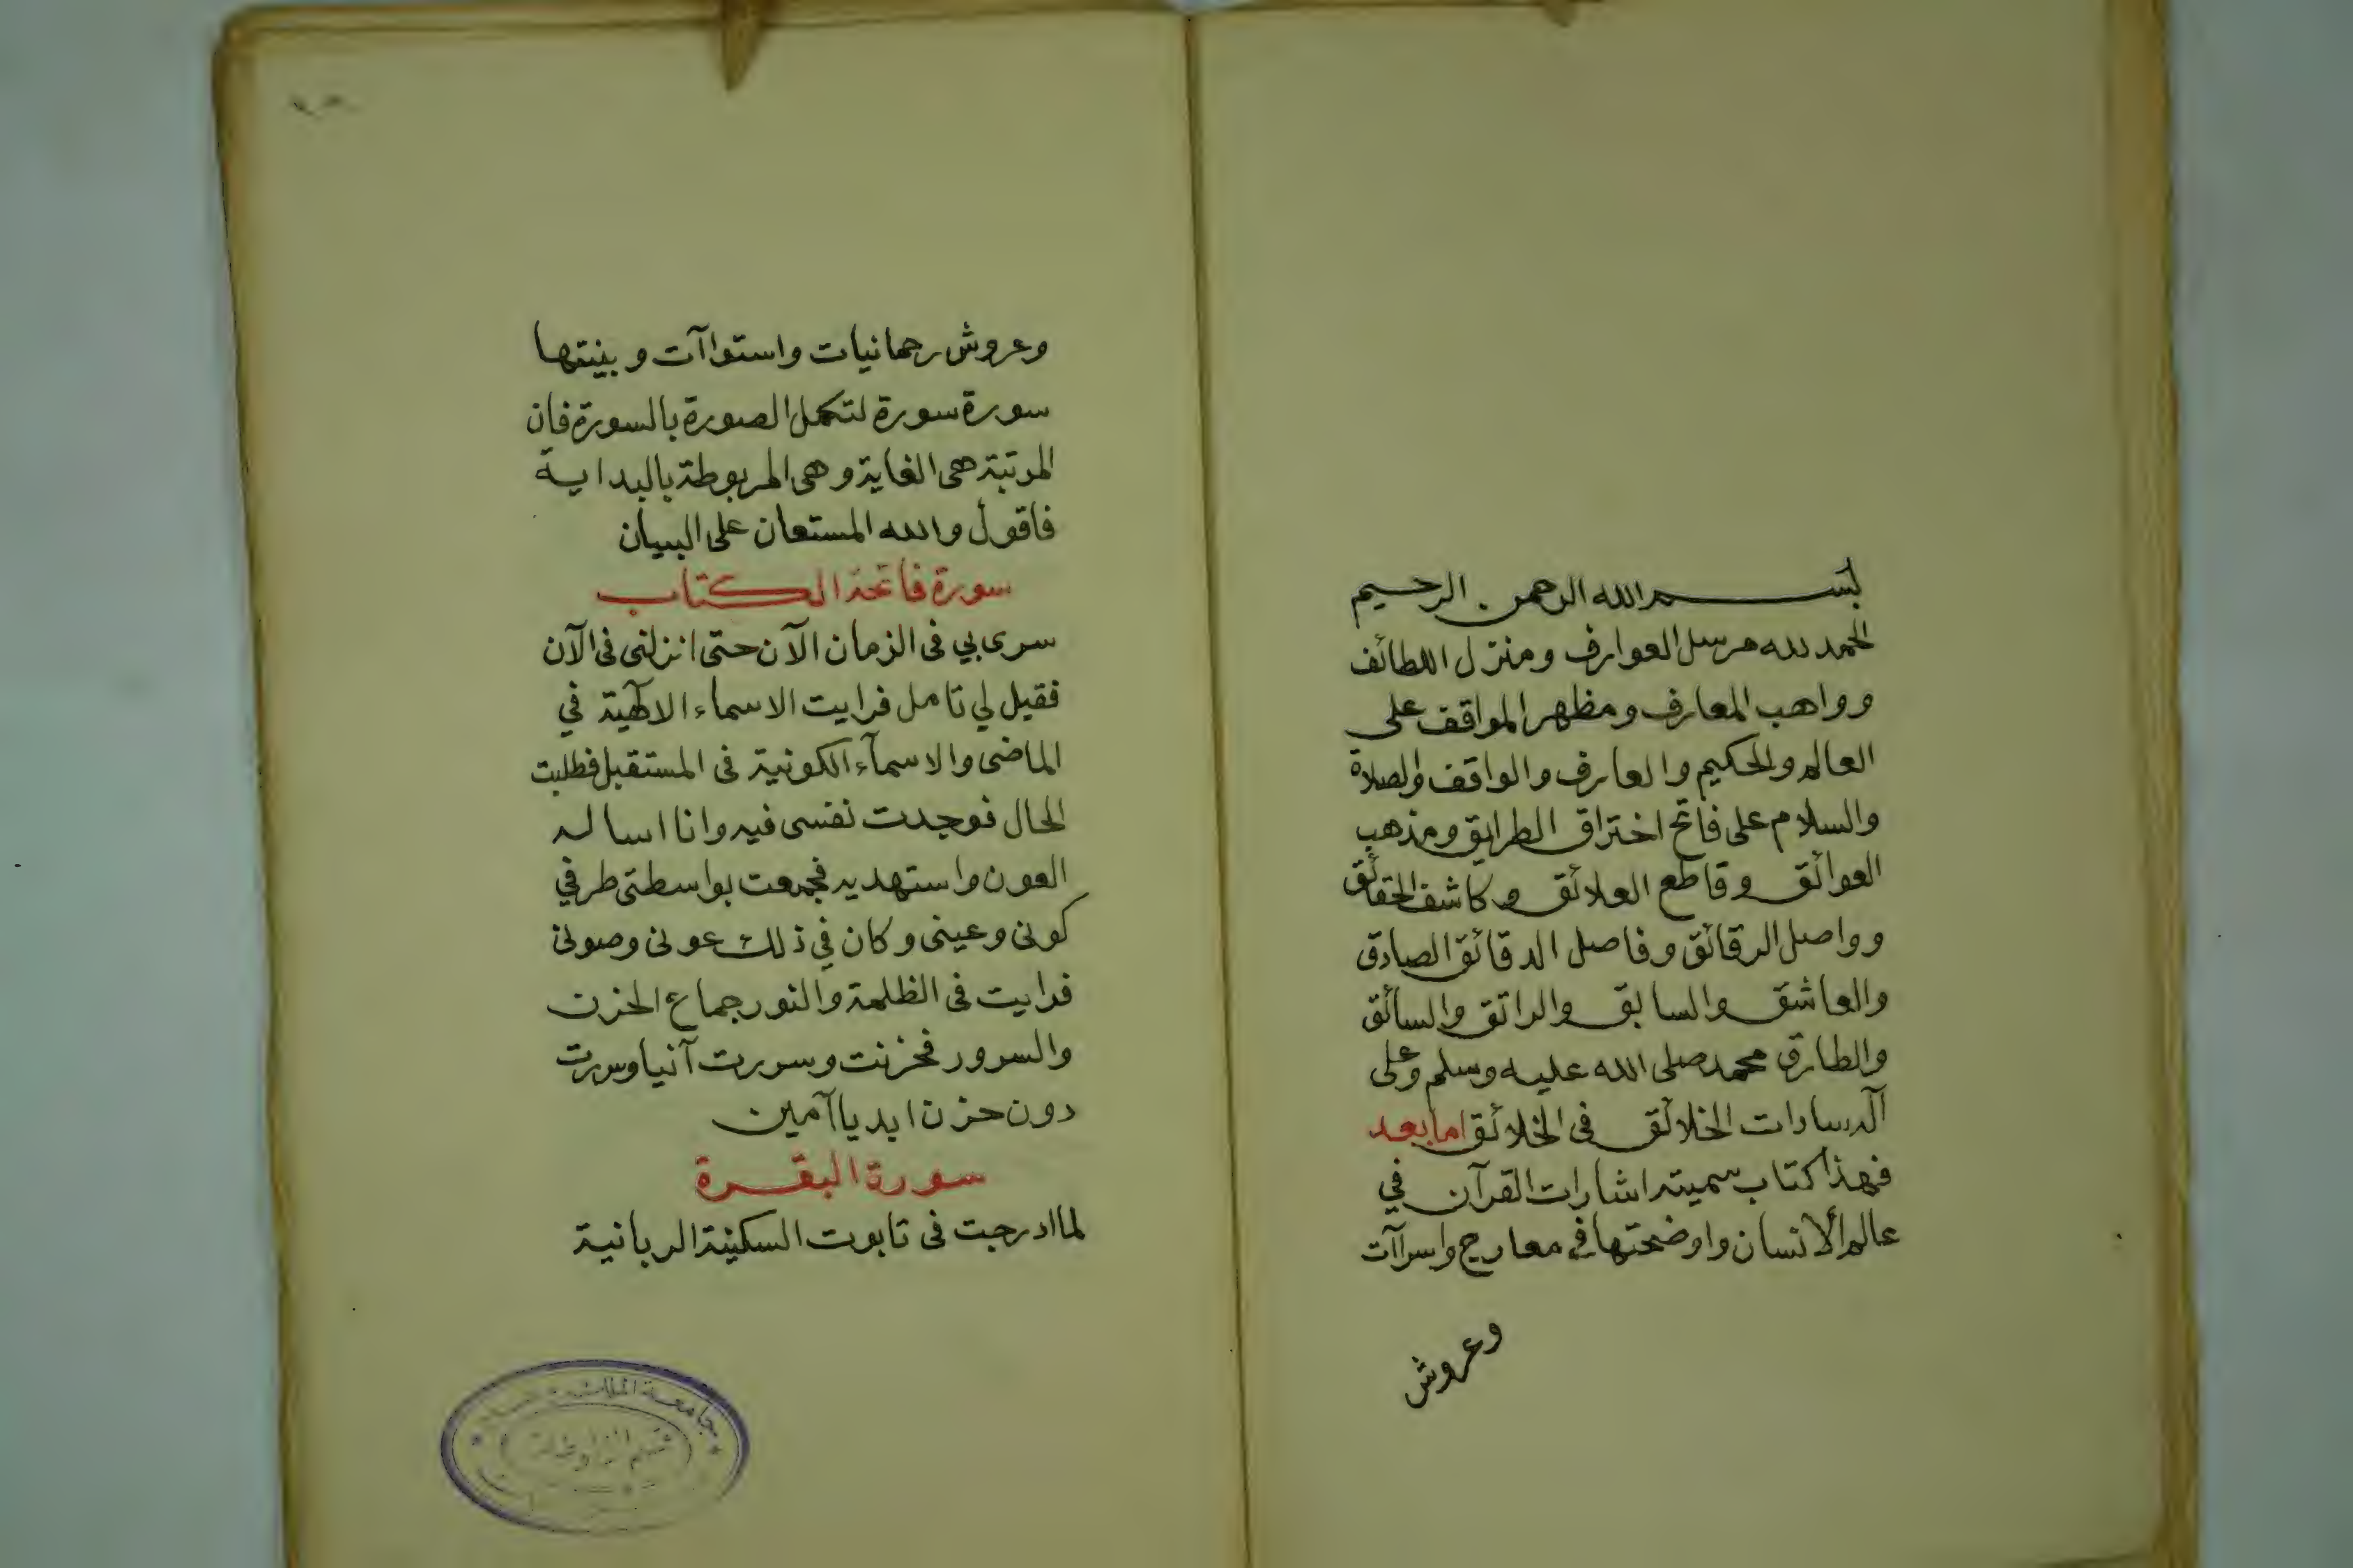 بسم الله الرحمن الرحيم
الحمد لله مرسل العوارف ومنزل اللطائف
وواهب المعارف ومظهر المواقف على
العالم والحكيم والعارف والواقف والصلاة
والسلام على فاتح اختراق الطرايق ومذهب
العوائق وقاطع العلائق وكاشف الحقائق
وواصل الرقائق وفاصل الدقائق الصادق
والعاشق والسابق والراتق والسائق
والطارق محمد صلى الله عليه وسلم وعلى
آله سادات الخلائق في الخلائق اما بعد
فهذا كتاب سميته اشارات القرآن في
عالم الانسان واوضحتها في معارج واسراآت
وعروش
وعروش رحمانيات واستواآت وبينتها
سورة سورة لتكمل الصورة بالسورة فان
المرتبة هي الغاية وهي المربوطة بالبداية
فاقول والله المستعان على البيان
سورة فاتحة الكتاب
سرى بي في الزمان الآن حتى انزلني في الآن
فقيل لي تامل فرايت الاسماء الالهية في
الماضى والاسمآء الكونية فى المستقبل فطلبت
الحال فوجدت نفسى فيه وانا اساله
العون واستهديه فجمعت بواسطتى طرفي
كونى وعينى وكان في ذلك عونى وصونى
فرايت فى الظلمة والنور جماع الحزن
والسرور فحزنت وسررت آنيا وسررت
دون حزن ابديا آمين
سورة البقرة
لما ادرجت فى تابوت السكينة الربانية
جامعة الملك
قسم